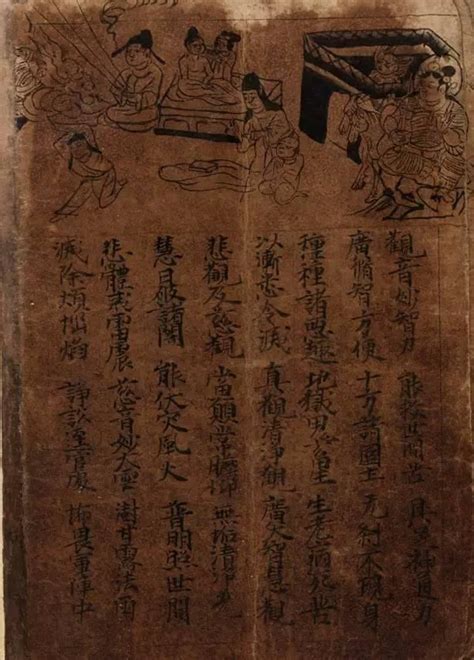 觀音妙智力 能救世間苦 具足神通力
廣脩智方便 十方諸國土 无刹不現身
種種諸惡趣 地獄鬼畜生 生老病死苦
以漸悉令滅 真觀清淨觀 廣大智慧觀
悲觀及慈觀 常願常瞻仰 無垢清淨光
慧日破諸闇 能伏灾風火 普明照世間
悲體戒雷震 慈音妙大雲 澍甘露法雨
滅除煩惱焰 諍訟逕官處 怖畏軍陣中